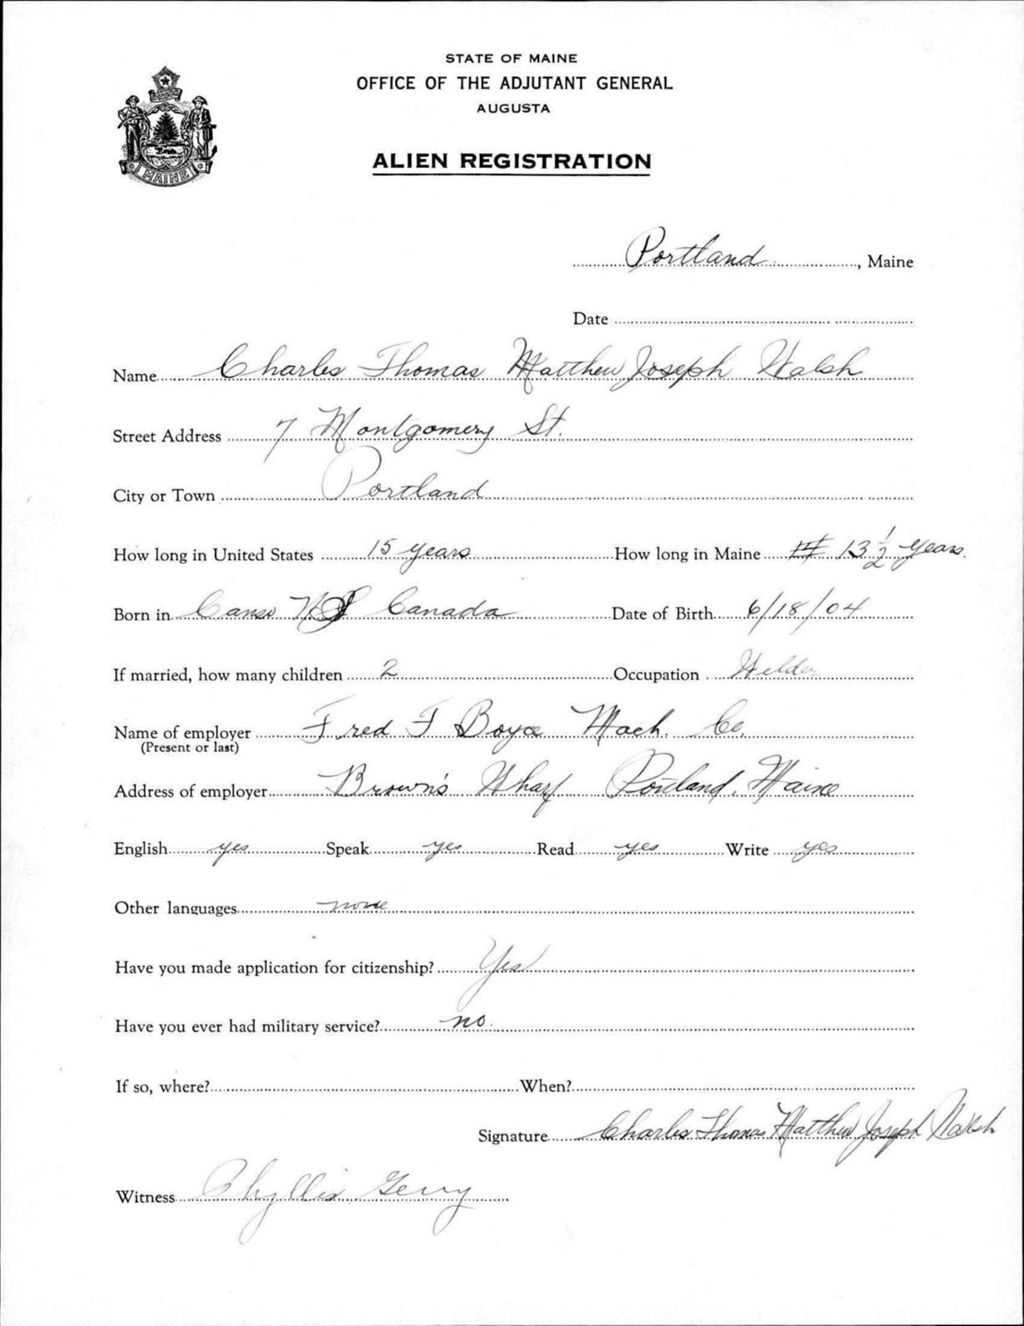 STATE OF MAINE
OFFICE OF THE ADJUTANT GENERAL
AUGUSTA
ALIEN REGISTRATION
MAINE
Portland, Maine
Date
Name Charles Thomas Matthew Joseph Walsh
Street Address 7 Montgomery St.
City or Town Portland
How long in United States 15 years How long in Maine 13 1/2 years
Born in Canso N S Canada Date of Birth 6/18/04
If married, how many children 2 Occupation Welder
Name of employer Fred F Boyce Mach. Co.
(Present or last)
Address of employer Brown's Wharf Portland, Maine
English yes Speak yes Read yes Write yes
Other languages none
Have you made application for citizenship? Yes
Have you ever had military service? no.
If so, where? When?
Signature Charles Thomas Matthew Joseph Walsh
Witness Phyllis Gerry